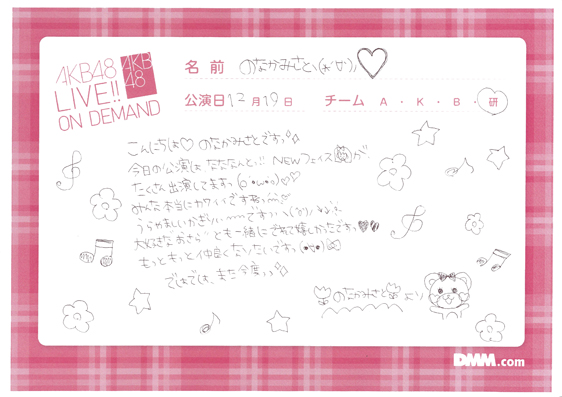 AKB48
LIVE!!
ON DEMAND
AKB
48
名前 のなかみさとヽ(*'▽')ノ♡
公演日 12月19日 チーム A・K・B・研
こんにちは♡のなかみさとですっ
今日の公演は、たたなんとっ!! NEWフェイスが、
たくさん出演してますっ(o・ω・o)♡♡
みんな本当にカワイイです
うらやましいかぎり
大好きな とも一緒にできて嬉しかったです。♥♥
もっともっと仲良くなりたいですっ
ではでは、また今度っっ
のなかみさと より
DMM.com